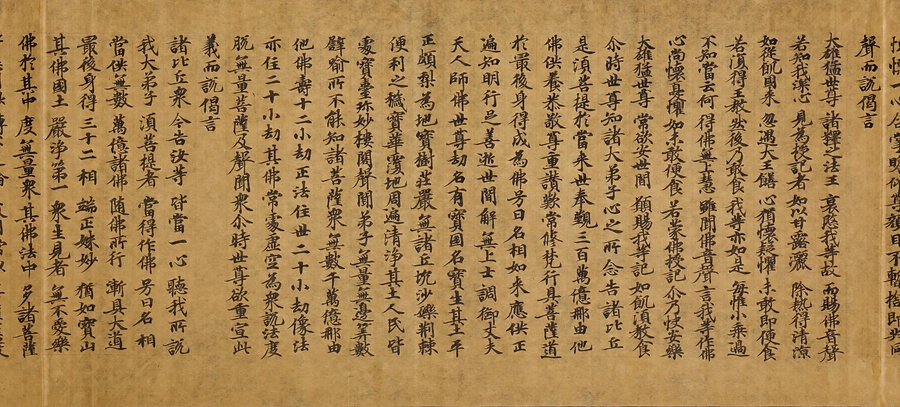 一心合掌瞻仰尊顏目不暫捨即共同
聲而說偈言
大雄猛世尊 諸釋之法王 哀愍我等故 而賜佛音聲
若知我深心 見為授記者 如以甘露灑 除熱得清涼
如從飢國來 忽遇大王饍 心猶懷疑懼 未敢即便食
若復得王教 然後乃敢食 我等亦如是 每惟小乘過
不知當云何 得佛無上慧 雖聞佛音聲 言我等作佛
心尚懷憂懼 如未敢便食 若蒙佛授記 尒乃快安樂
大雄猛世尊 常欲安世間 願賜我等記 如飢須教食
尒時世尊知諸大弟子心之所念告諸比丘
是須菩提於當來世奉覲三百萬億那由他
佛供養恭敬尊重讚歎常修梵行具菩薩道
於最後身得成為佛号曰名相如來應供正
遍知明行足善逝世間解無上士調御丈夫
天人師佛世尊劫名有寶國名寶生其土平
正頗梨為地寶樹莊嚴無諸丘坑沙礫荊棘
便利之穢寶華覆地周遍清淨其土人民皆
處寶臺珍妙樓閣聲聞弟子無量無邊筭數
譬喻所不能知諸菩薩眾無數千萬億那由
他佛壽十二小劫正法住世二十小劫像法
亦住二十小劫其佛常處虛空為眾說法度
脫無量菩薩及聲聞眾尒時世尊欲重宣此
義而說偈言
諸比丘眾 今告汝等 皆當一心 聽我所說
我大弟子 須菩提者 當得作佛 号曰名相
當供無數 萬億諸佛 隨佛所行 漸具大道
最後身得 三十二相 端正姝妙 猶如寶山
其佛國土 嚴淨第一 眾生見者 無不愛樂
佛於其中 度無量眾 其佛法中 多諸菩薩